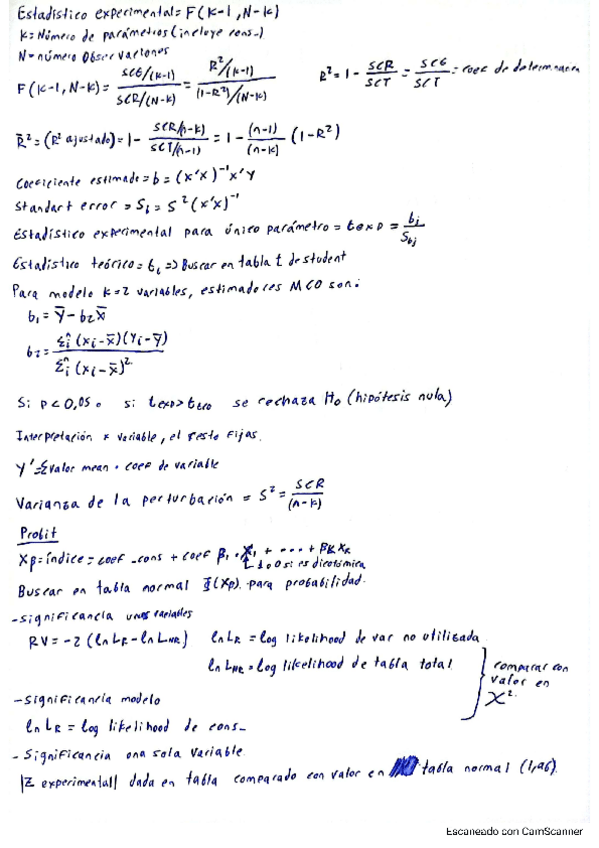 Estadístico experimental = F(k-1, N-k)
k = Número de parámetros (incluye cons_)
N = número Observaciones
F(k-1, N-k) = SCE/(k-1) / SCR/(N-k) = R²/(k-1) / (1-R²)/(N-k)    R² = 1 - SCR/SCT = SCE/SCT = coef de determinación
R̄² = (R² ajustado) = 1 - SCR/(n-k) / SCT/(n-1) = 1 - (n-1)/(n-k) (1-R²)
Coeficiente estimado = b = (x'x)⁻¹x'y
Standart error = S_b = S²(x'x)⁻¹
Estadístico experimental para único parámetro = t exp = bj/Sbj
Estadístico teórico = t_t => Buscar en tabla t de student
Para modelo k=2 variables, estimadores MCO son:
b₁ = Ȳ - b₂X̄
b₂ = Σᵢⁿ (xi-x̄)(yi-ȳ) / Σᵢⁿ (xi-x̄)²
Si p<0,05 o si texp>tteo se rechaza H₀ (hipótesis nula)
Interpretación x variable, el resto fijas.
Y' = Σ valor mean · coef de variable
Varianza de la perturbación = S² = SCR/(n-k)
Probit
Xβ = índice = coef _cons + coef β₁ · X₁ + ··· + βk Xk
1 o 0 si es dicotómica
Buscar en tabla normal Φ(Xβ) para probabilidad.
- significancia unas variables
RV = -2 (ln LR - ln LNR)    ln LR = log likelihood de var no utilizada
ln LNR = log likelihood de tabla total
comparar con valor en X²
- Significancia modelo
ln LR = log likelihood de cons_
- Significancia una sola variable
|Z experimental| dada en tabla comparado con valor en tabla normal (1,96).
Escaneado con CamScanner